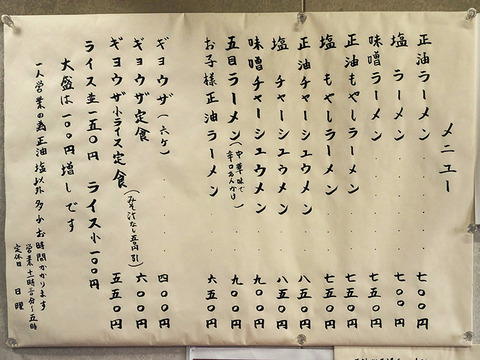 メニュー
正油ラーメン 七〇〇円
塩 ラーメン 七〇〇円
味噌ラーメン 七五〇円
正油もやしラーメン 七五〇円
塩 もやしラーメン 七五〇円
正油チャーシュウメン 八五〇円
塩 チャーシュウメン 八五〇円
味噌チャーシュウメン 九〇〇円
五目ラーメン(中華味で辛口あんかけ) 九〇〇円
お子様正油ラーメン 六五〇円
ギョウザ(六ケ) 四〇〇円
ギョウザ定食 六〇〇円
ギョウザ小ライス定食(みそ汁なし五〇円引) 五五〇円
ライス 一五〇円 ライス小一〇〇円
大盛は一〇〇円増しです
一人営業の為正油塩以外多少お時間かかります
営業 十一時三〇分〜五時
定休日 日曜